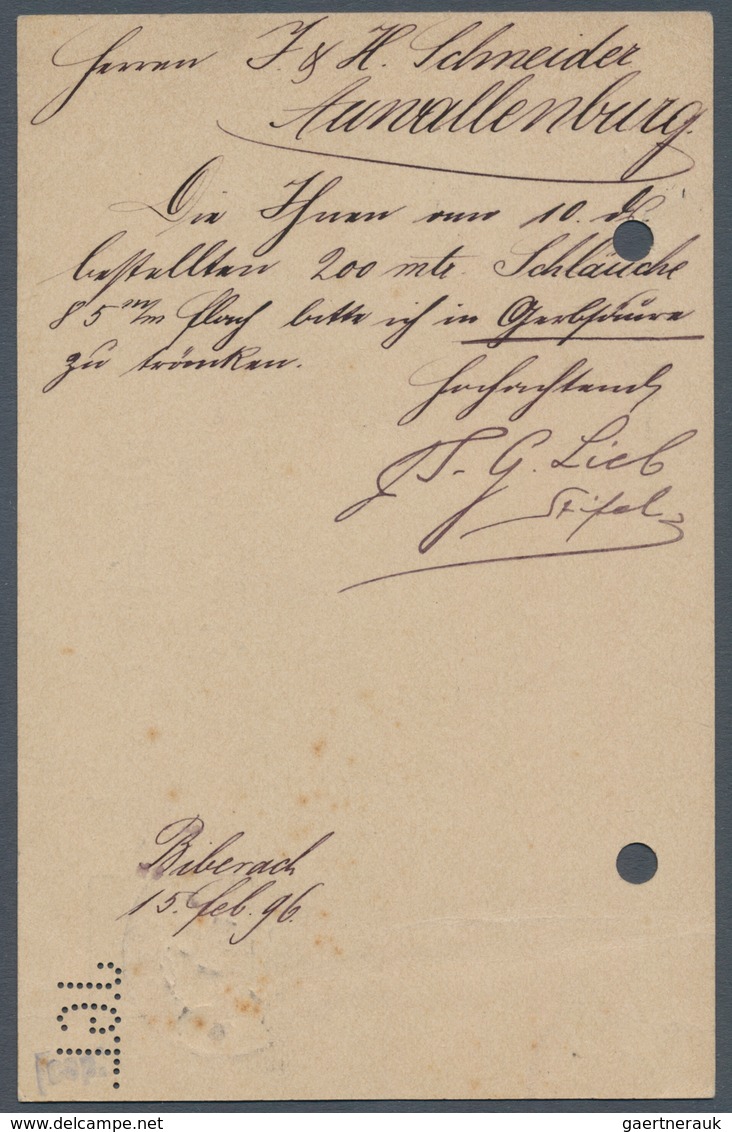 Herren J. & H. Schneider
Aunvallenburg.
Die Ihnen am 10. ds.
bestellten 200 mtr. Schläuche
85 m/m flach bitte ich in Gerbsäure
zu tränken.
Hochachtend
J. G. Lieb
Biberach
15. feb. 96.
www.delcampe.net
gaertnerauk